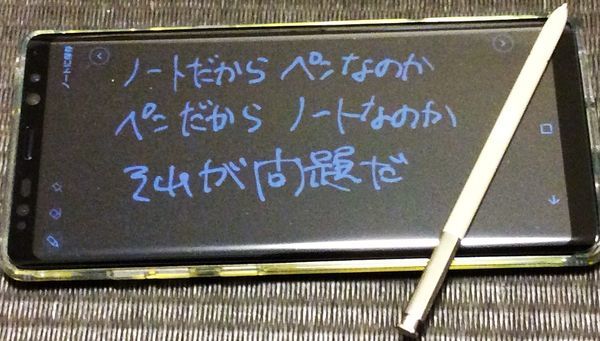 ノートだから ペンなのか
ペンだから ノートなのか
それが問題だ
ノートに保存